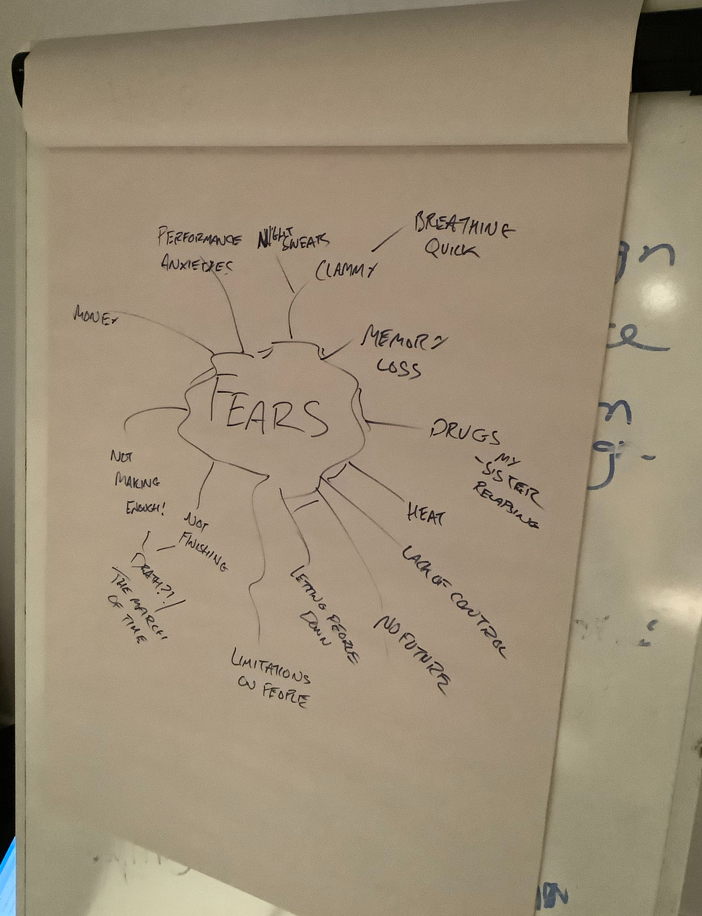 PERFORMANCE
ANXIETIES
NIGHT
SWEATS
CLAMMY
BREATHING
QUICK
MONEY
MEMORY
LOSS
FEARS
DRUGS
MY
-SISTER
RELAPSING
HEAT
LACK OF CONTROL
NO FUTURE
LETTING PEOPLE
DOWN
LIMITATIONS
ON PEOPLE
NOT
FINISHING
NOT
MAKING
ENOUGH!
DEATH?!
THE MARCH
OF TIME
gn
ce
n
g-